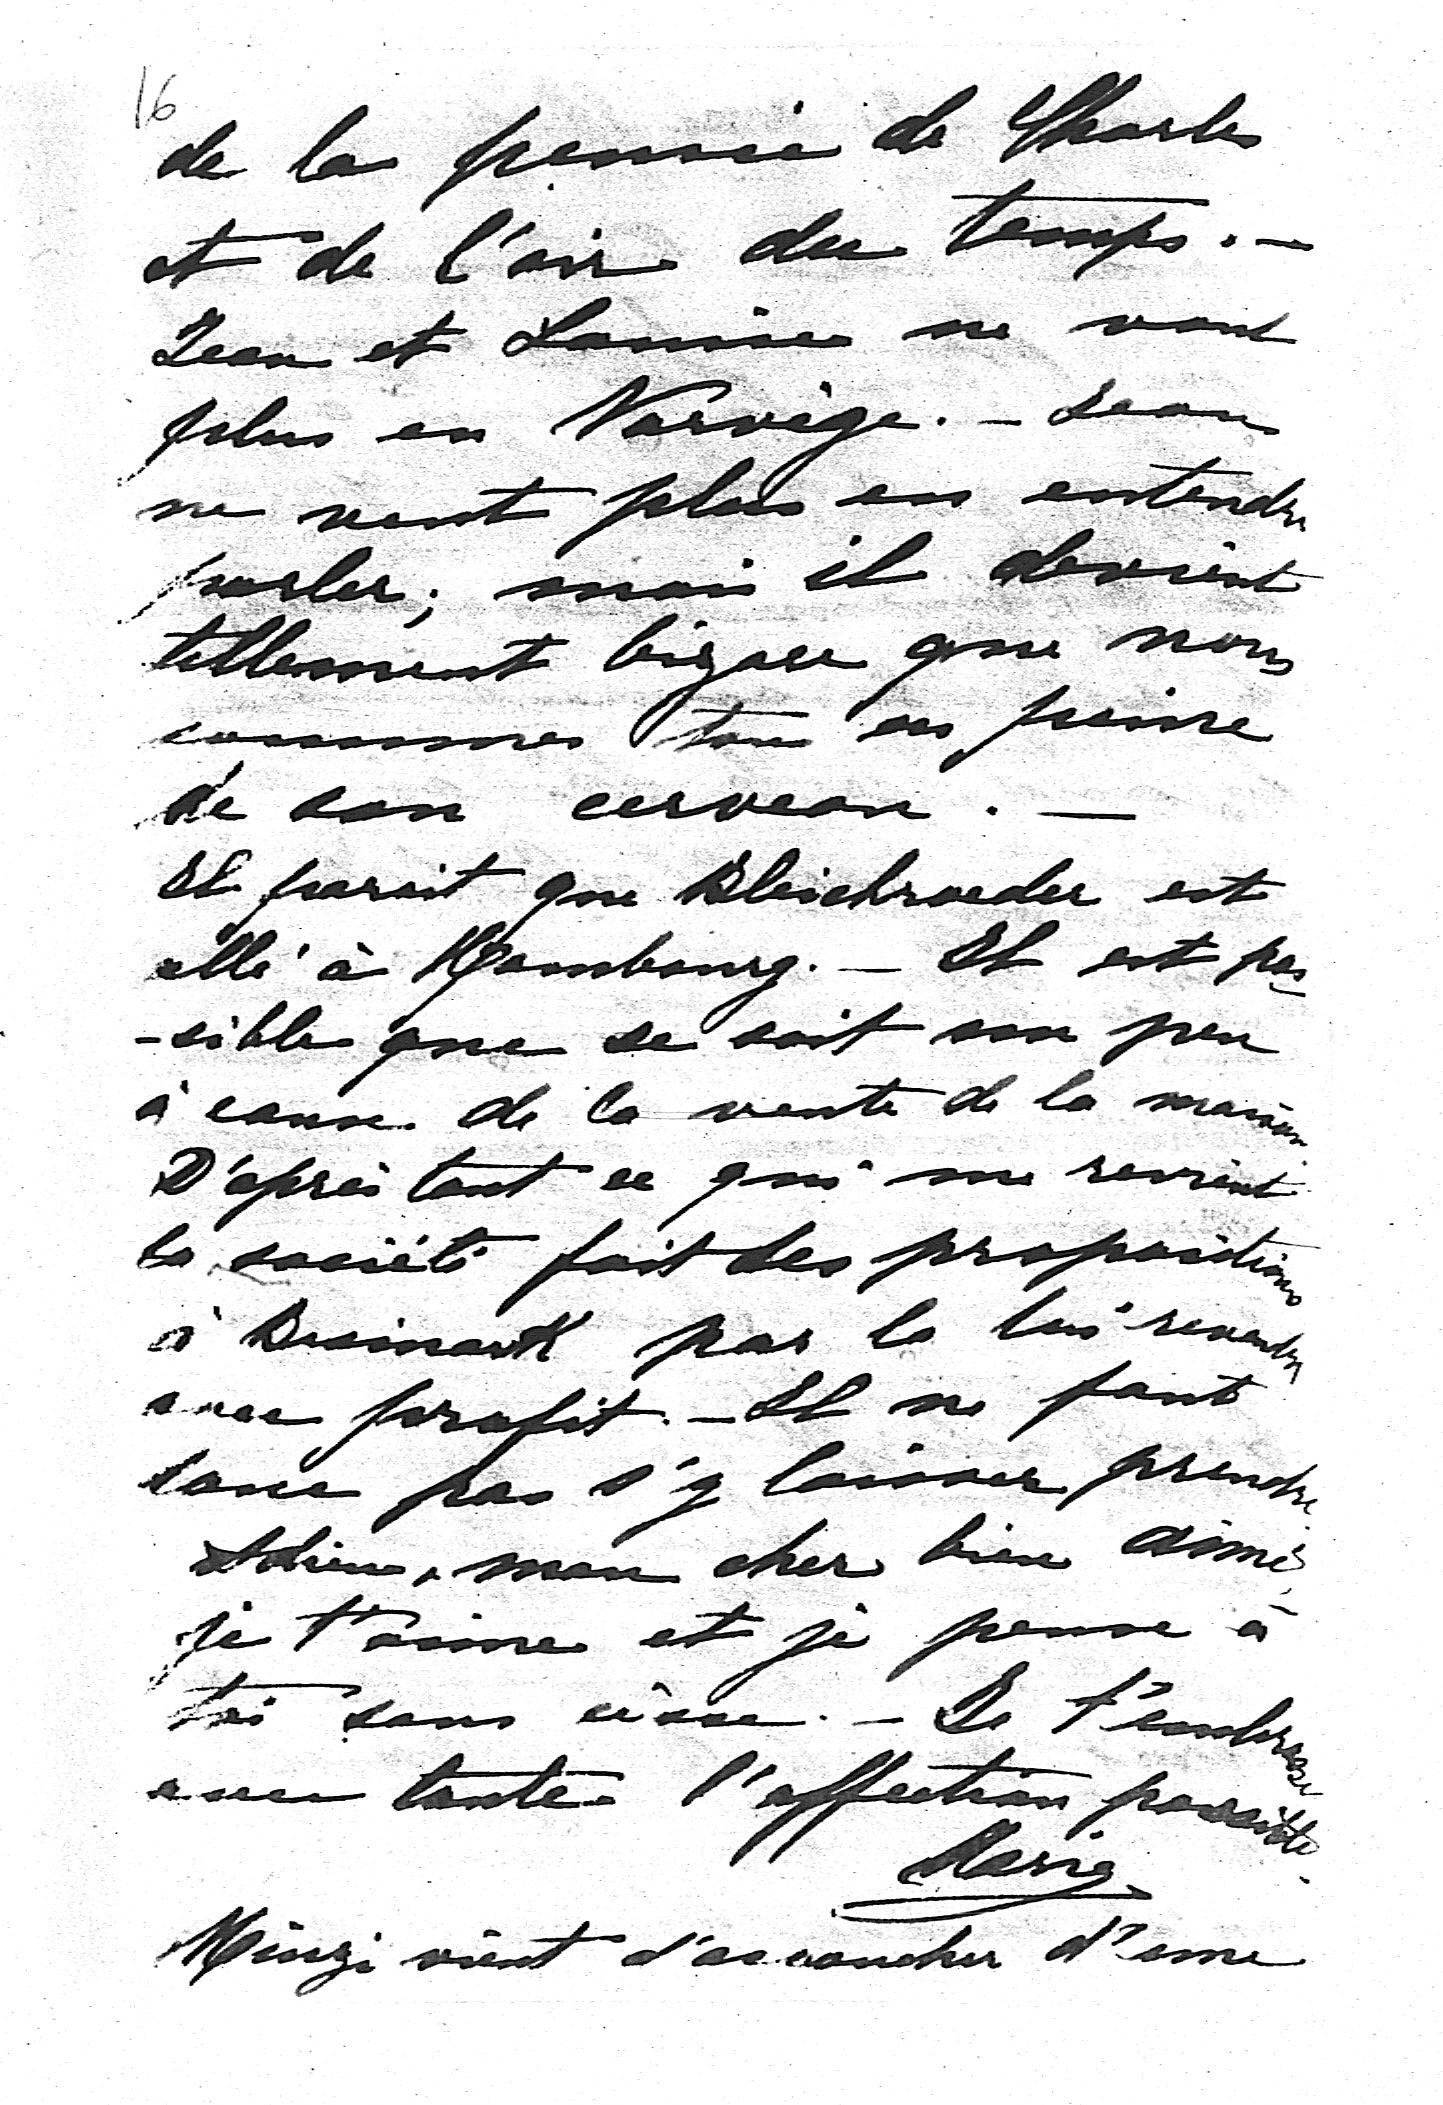 16
de la pensée de Charles
et de l'air du temps. —
Jean et Louise ne vont
plus en Norvège. — Jean
ne veut plus en entendre
parler; mais il devient
tellement bizarre que nous
sommes tous en peine
de son cerveau. —
Il parait que Bleichroeder est
allé à Hambourg. — Il est pos-
-sible que se soit un peu
à cause de la vente de la maison
D'après tout ce qui me revient
la société fait des propositions
à Bismark par la lui revendre
avec profit. — Il ne faut
pas s'y laisser prendre
Adieu, mon cher bien aimé,
je t'aime et je pense à
toi sans cesse. — Je t'embrasse
avec toute l'affection possible.
Marie
Minzi vient d'accoucher d'une